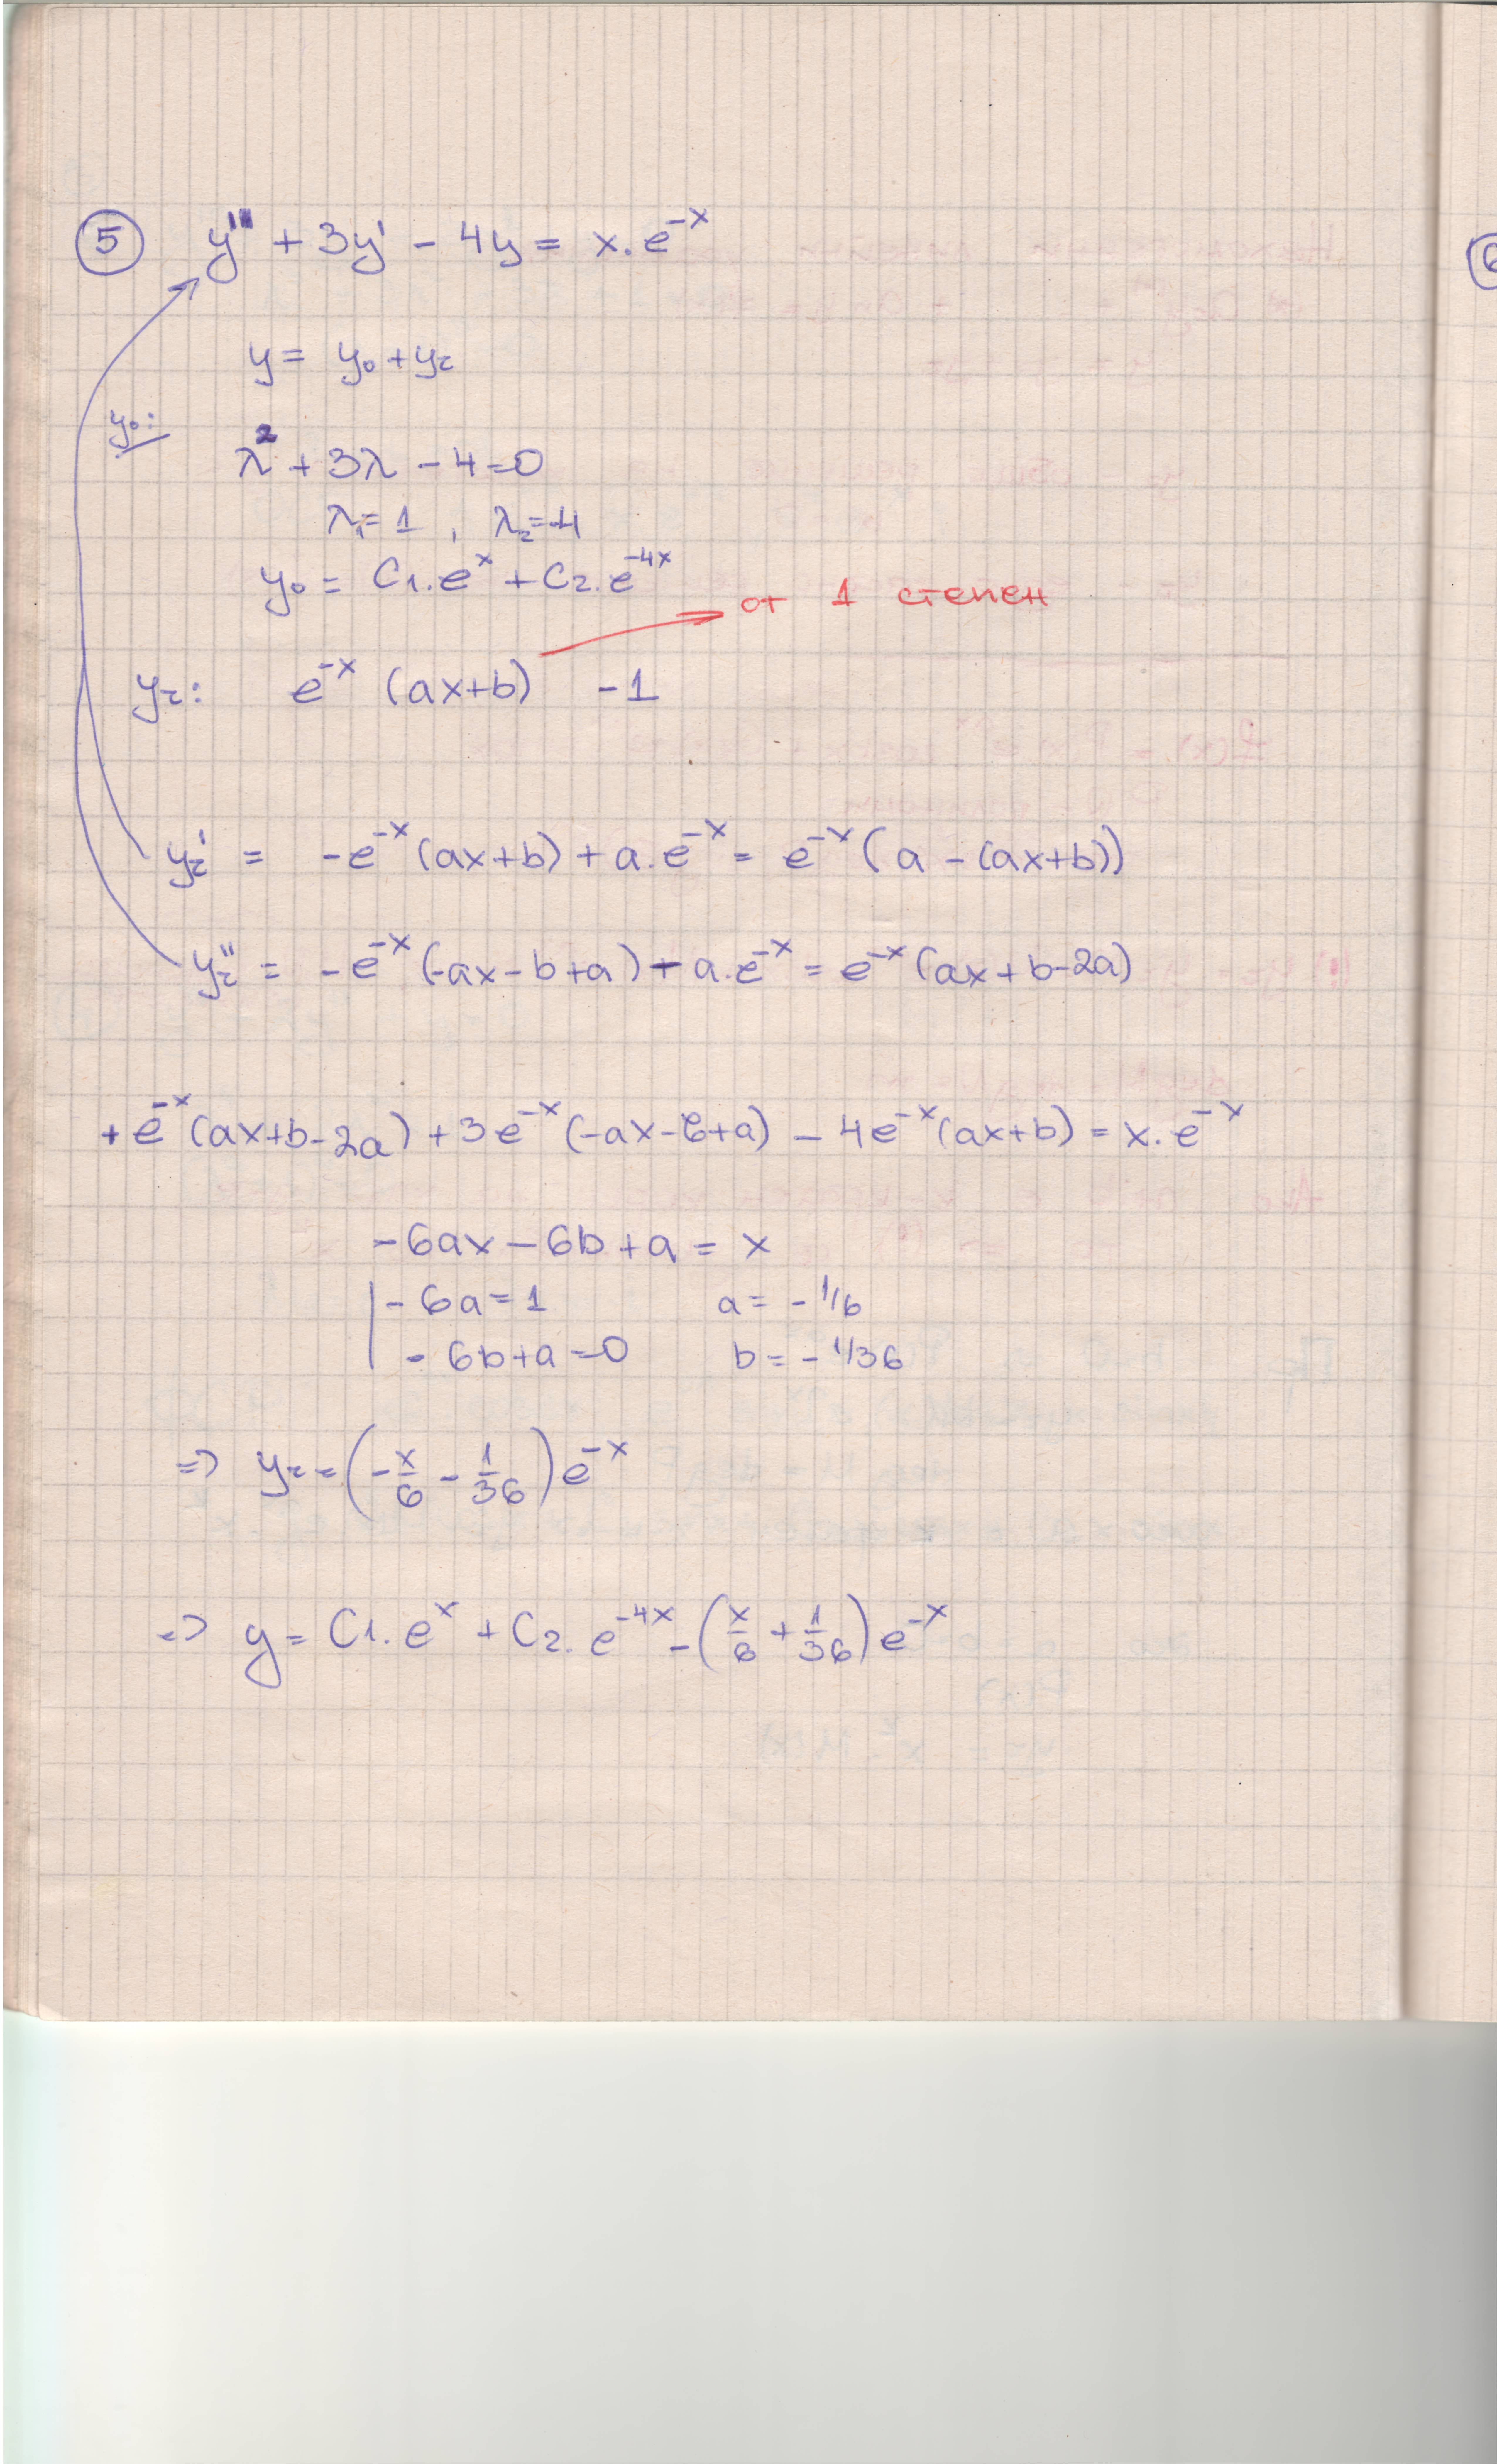 ⑤ y'' + 3y' - 4y = x.e^{-x}
y = y₀ + y_r
y₀:
λ² + 3λ - 4 = 0
λ₁ = 1 , λ₂ = -4
y₀ = C₁.e^{x} + C₂.e^{-4x}
от 1 степен
y_r: e^{-x} (ax+b) -1
y_r' = -e^{-x}(ax+b) + a.e^{-x} = e^{-x}(a - (ax+b))
y_r'' = -e^{-x}(-ax-b+a) - a.e^{-x} = e^{-x}(ax+b-2a)
+ e^{-x}(ax+b-2a) + 3e^{-x}(-ax-b+a) - 4e^{-x}(ax+b) = x.e^{-x}
-6ax - 6b + a = x
| -6a = 1 a = -1/6
| -6b+a = 0 b = -1/36
=> y_r = (-x/6 - 1/36) e^{-x}
=> y = C₁.e^{x} + C₂.e^{-4x} - (x/6 + 1/36) e^{-x}